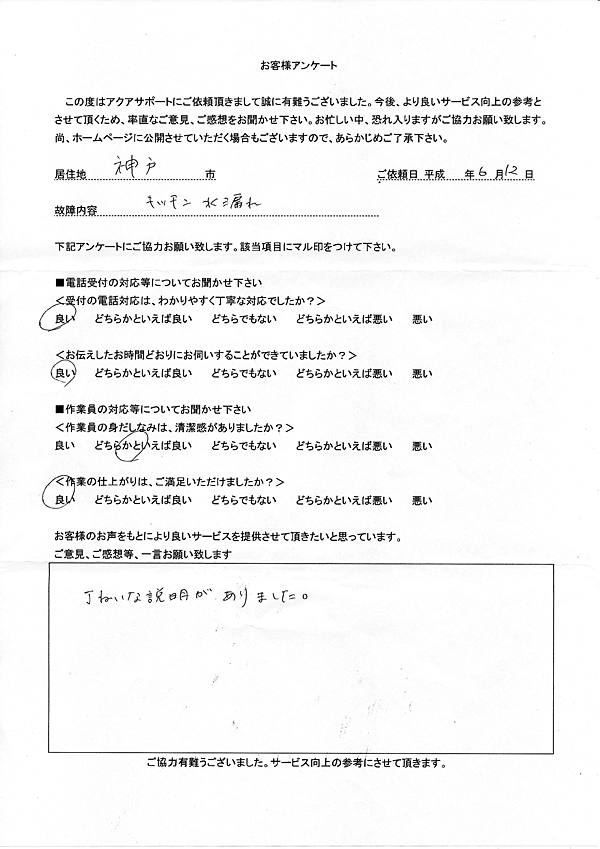 お客様アンケート
この度はアクアサポートにご依頼頂きまして誠に有難うございました。今後、より良いサービス向上の参考と
させて頂くため、率直なご意見、ご感想をお聞かせ下さい。お忙しい中、恐れ入りますがご協力お願い致します。
尚、ホームページに公開させていただく場合もございますので、あらかじめご了承下さい。
居住地 神戸 市 ご依頼日 平成 年 6 月 12 日
故障内容 キッチン 水漏れ
下記アンケートにご協力お願い致します。該当項目にマル印をつけて下さい。
■電話受付の対応等についてお聞かせ下さい
＜受付の電話対応は、わかりやすく丁寧な対応でしたか？＞
良い どちらかといえば良い どちらでもない どちらかといえば悪い 悪い
＜お伝えしたお時間どおりにお伺いすることができていましたか？＞
良い どちらかといえば良い どちらでもない どちらかといえば悪い 悪い
■作業員の対応等についてお聞かせ下さい
＜作業員の身だしなみは、清潔感がありましたか？＞
良い どちらかといえば良い どちらでもない どちらかといえば悪い 悪い
＜作業の仕上がりは、ご満足いただけましたか？＞
良い どちらかといえば良い どちらでもない どちらかといえば悪い 悪い
お客様のお声をもとにより良いサービスを提供させて頂きたいと思っています。
ご意見、ご感想等、一言お願い致します
丁ねいな説明がありました。
ご協力有難うございました。サービス向上の参考にさせて頂きます。